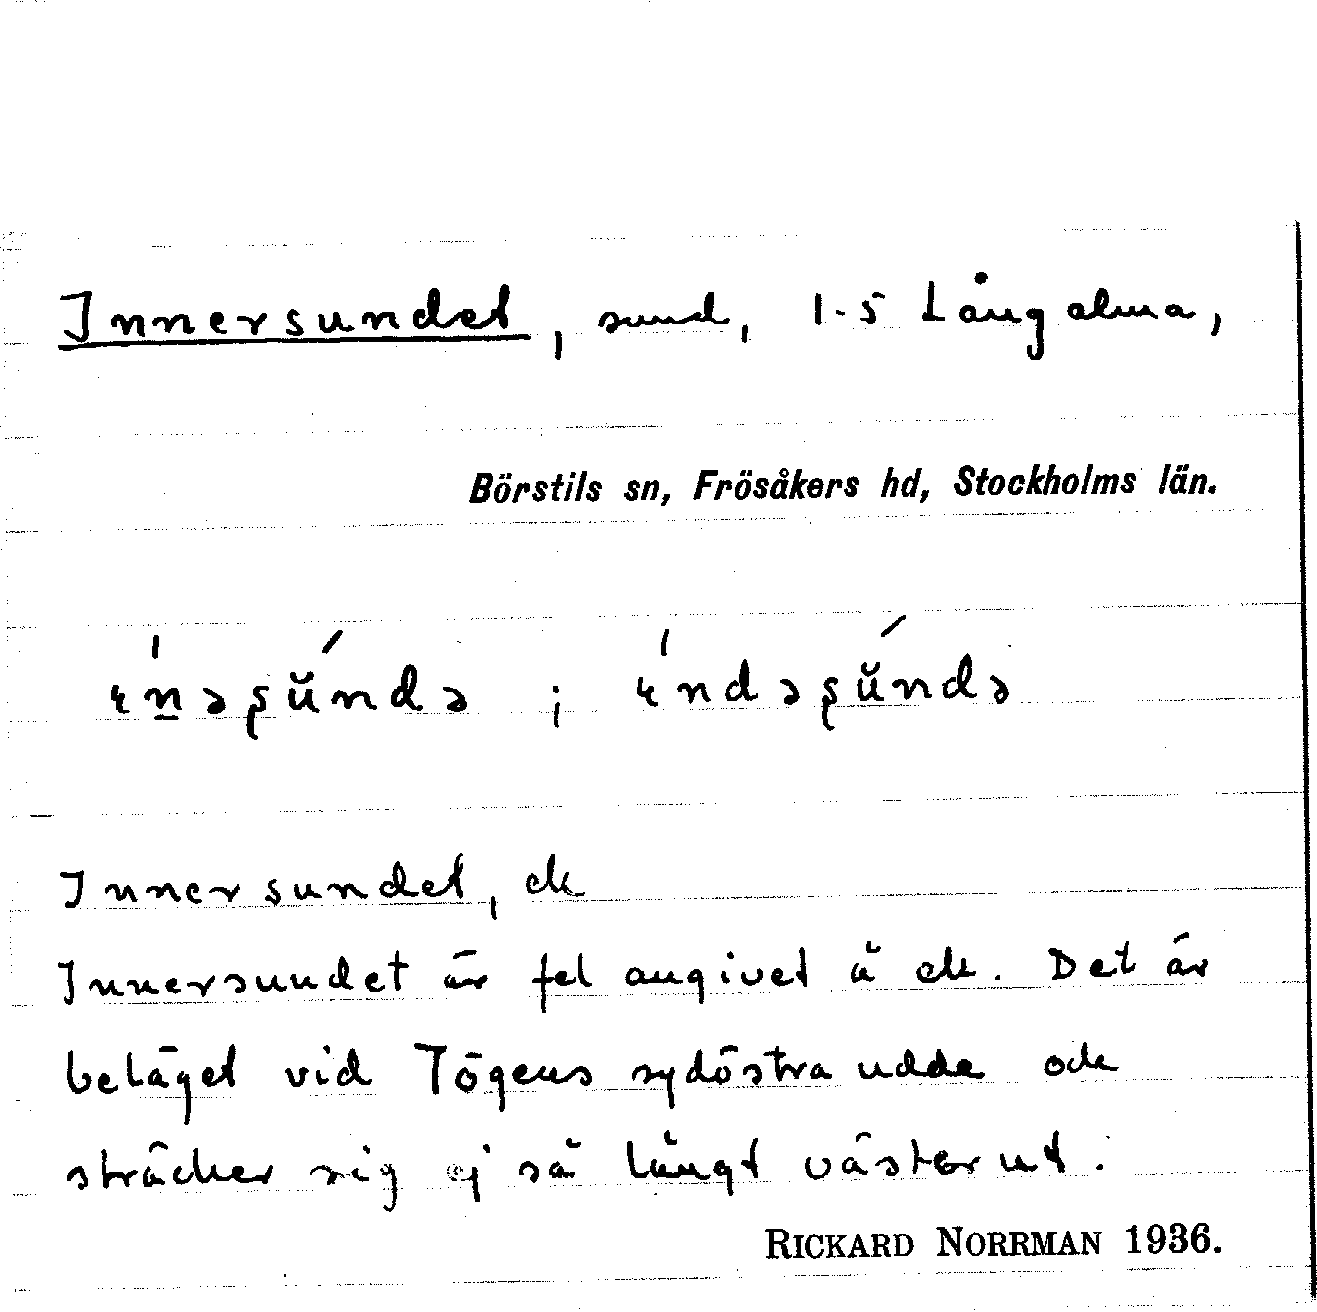 Innersundet, sund, 1-5 Långalma,
Börstils sn, Frösåkers hd, Stockholms län.
Innersundet, ek
Innersundet är fel angivet å ek. Det är
beläget vid Tögens sydöstra udde och
sträcker sig ej så långt västerut.
RICKARD NORRMAN 1936.